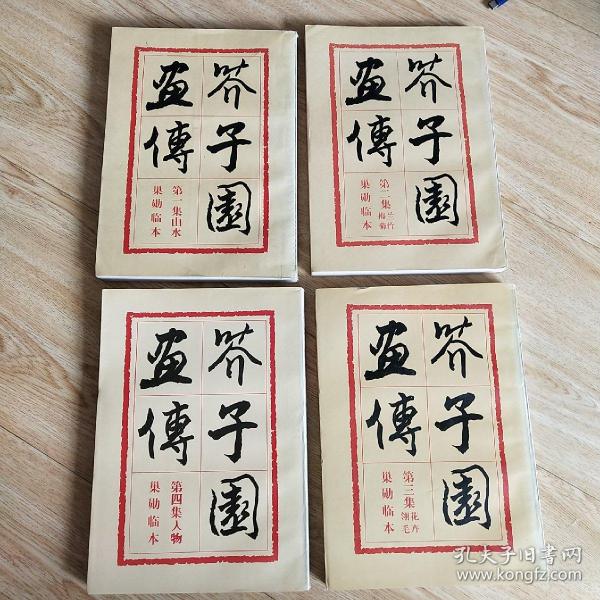 芥子園
畫傳
第一集山水
巢勋临本
芥子園
畫傳
第二集兰竹梅菊
巢勋临本
芥子園
畫傳
第四集人物
巢勋临本
芥子園
畫傳
第三集花卉翎毛
巢勋临本
孔夫子旧书网
www.kongfz.com